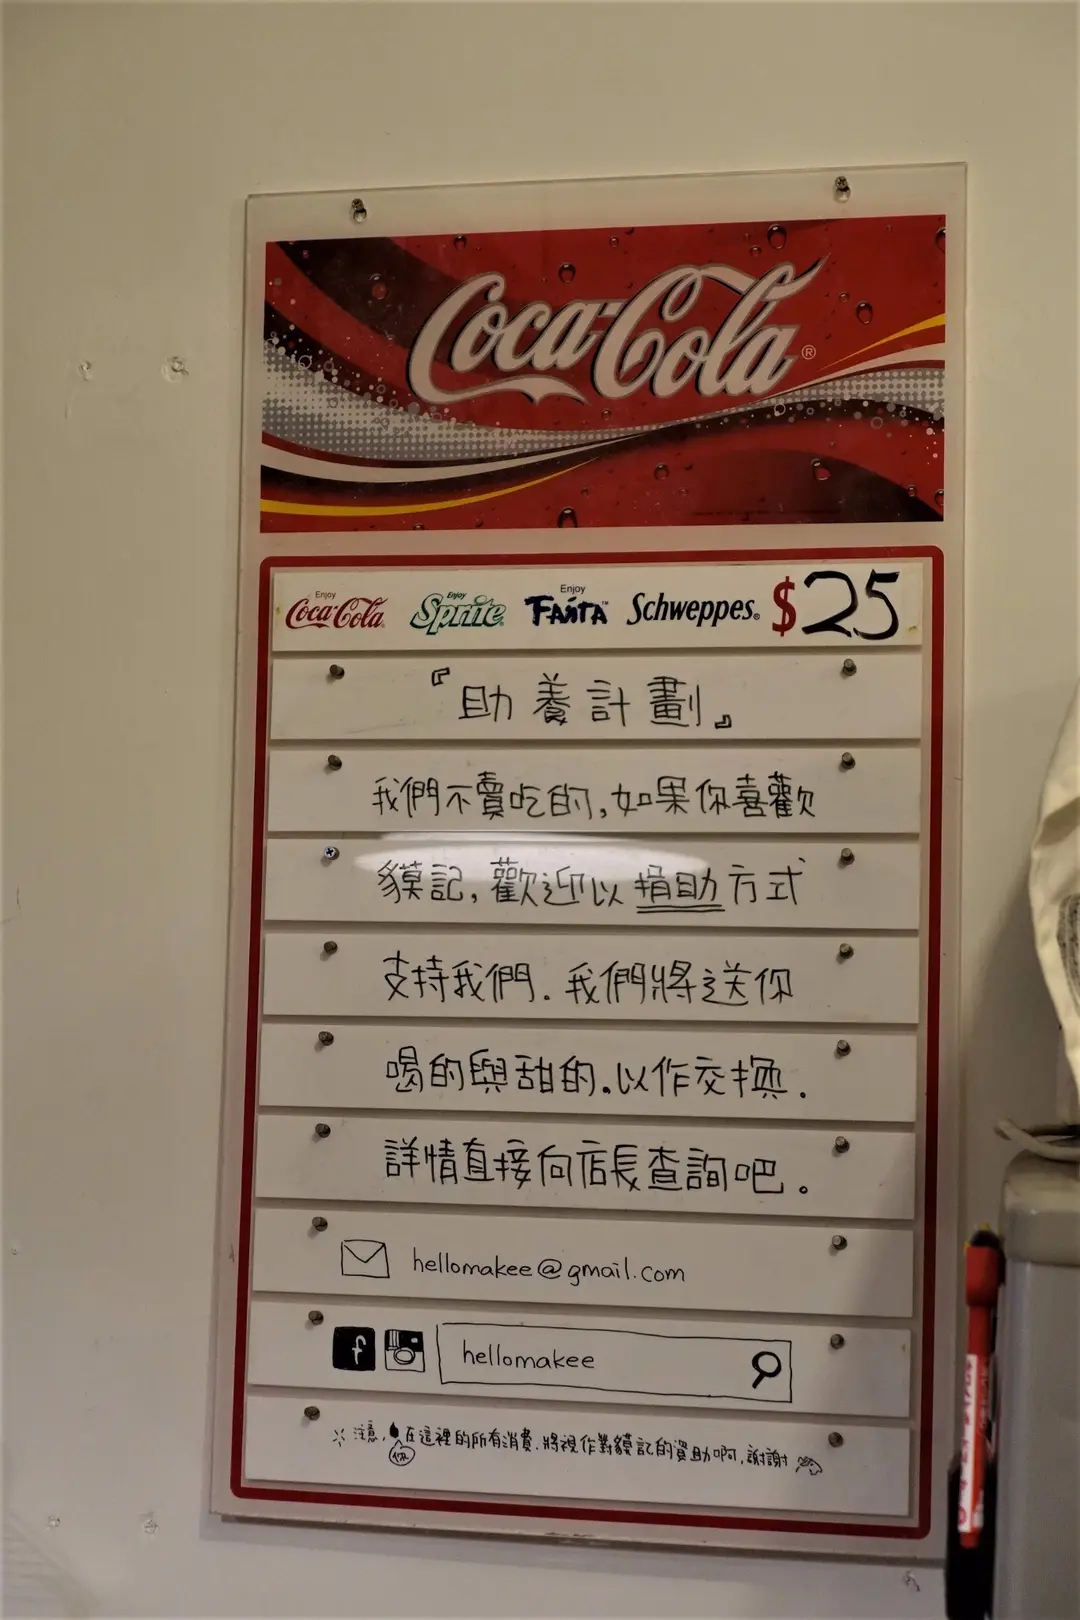 Coca-Cola®
Enjoy Coca-Cola Enjoy Sprite Enjoy FANTA™ Schweppes. $25
『助養計劃』
我們不賣吃的,如果你喜歡
貘記,歡迎以捐助方式
支持我們.我們將送你
喝的與甜的.以作交換.
詳情直接向店長查詢吧。
hellomakee@gmail.com
f hellomakee
注意,你在這裡的所有消費.將視作對貘記的資助啊,謝謝